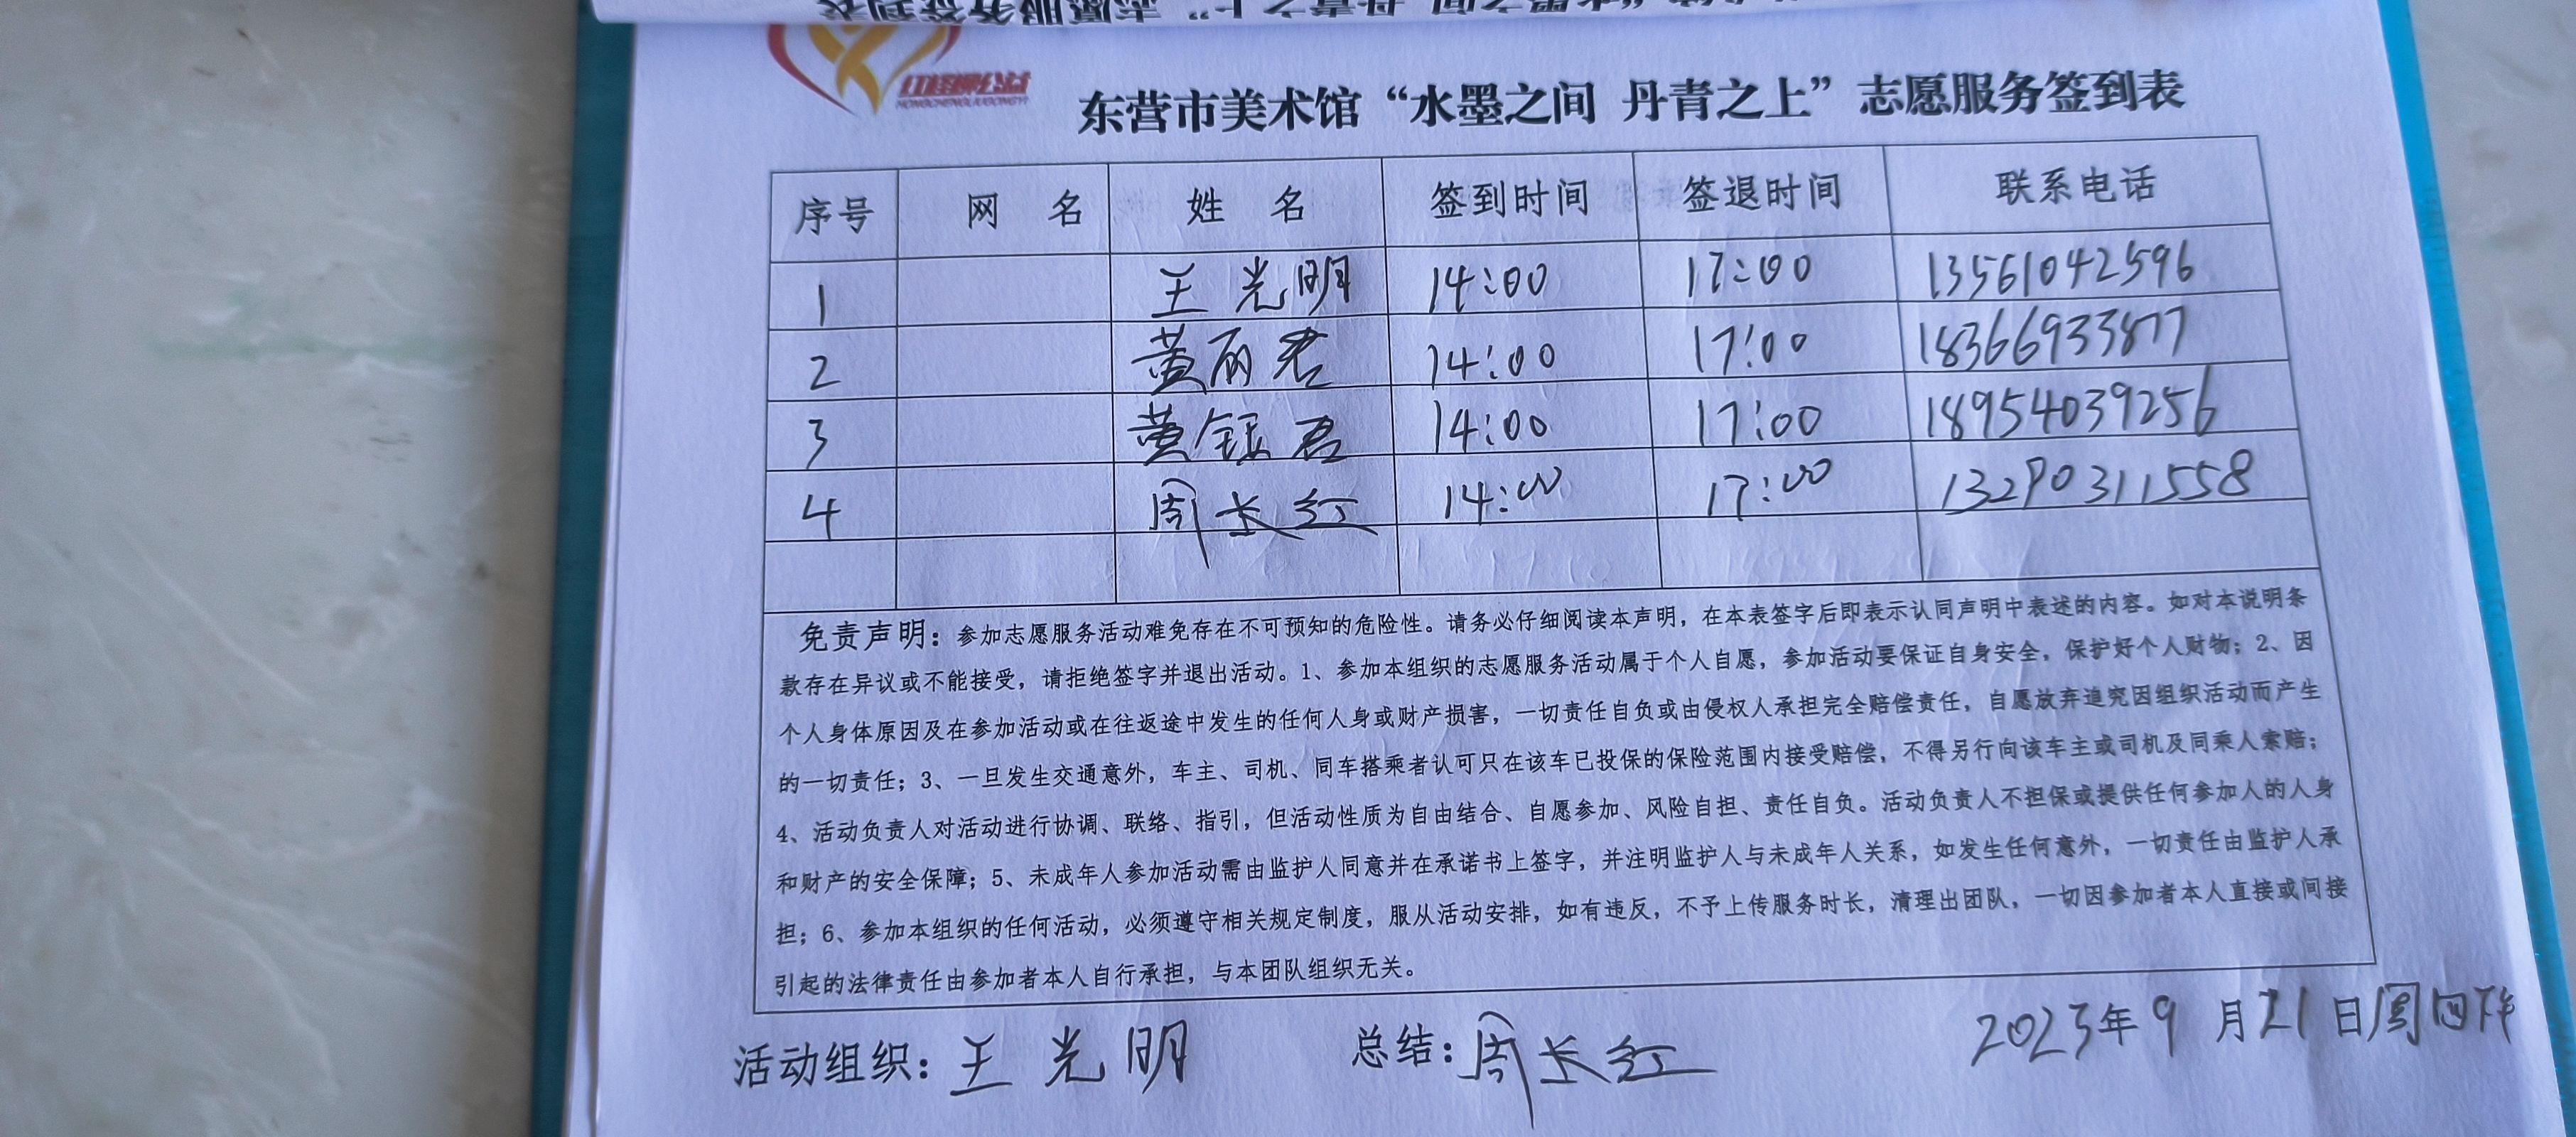 红柽柳公益
HONGCHENGLIUGONGYI
东营市美术馆“水墨之间 丹青之上”志愿服务签到表
序号 网 名 姓 名 签到时间 签退时间 联系电话
1 王光明 14:00 17:00 13561042596
2 黄丽君 14:00 17:00 18366933877
3 黄银君 14:00 17:00 18954039256
4 周长红 14:00 17:00 13290311558
免责声明：参加志愿服务活动难免存在不可预知的危险性。请务必仔细阅读本声明，在本表签字后即表示认同声明中表述的内容。如对本说明条
款存在异议或不能接受，请拒绝签字并退出活动。1、参加本组织的志愿服务活动属于个人自愿，参加活动要保证自身安全，保护好个人财物；2、因
个人身体原因及在参加活动或在往返途中发生的任何人身或财产损害，一切责任自负或由侵权人承担完全赔偿责任，自愿放弃追究因组织活动而产生
的一切责任；3、一旦发生交通意外，车主、司机、同车搭乘者认可只在该车已投保的保险范围内接受赔偿，不得另行向该车主或司机及同乘人索赔；
4、活动负责人对活动进行协调、联络、指引，但活动性质为自由结合、自愿参加、风险自担、责任自负。活动负责人不担保或提供任何参加人的人身
和财产的安全保障；5、未成年人参加活动需由监护人同意并在承诺书上签字，并注明监护人与未成年人关系，如发生任何意外，一切责任由监护人承
担；6、参加本组织的任何活动，必须遵守相关规定制度，服从活动安排，如有违反，不予上传服务时长，清理出团队，一切因参加者本人直接或间接
引起的法律责任由参加者本人自行承担，与本团队组织无关。
活动组织：王光明 总结：周长红 2023年9月21日周四下午